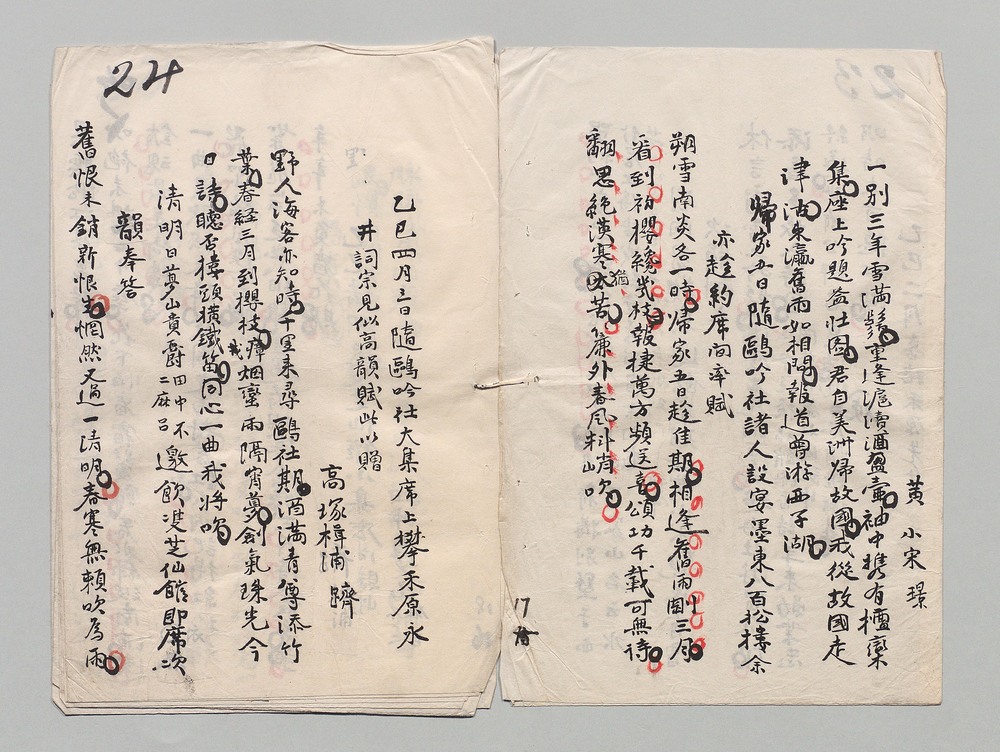 黃小宋 璟
一別三年雪滿鬚重逢滬瀆酒盈壼袖中攜有檀欒
集座上吟題益壯圖君自美洲帰故國我從故國走
津沽東瀛舊雨如相問報道曽游西子湖
帰家五日隨鷗吟社諸人設宴墨東八百松樓余
亦趁約席間率賦
朔雪南炎各一時帰家五日趁佳期相逢舊雨閏三月
看到初櫻纔幾枝報捷萬方頻送喜頌功千載可無待
翻思絶漠寒猶苦簾外春風料峭吹
17
24
乙巳四月三日隨鷗吟社大集席上攀禾原永
井詞宗見似高韻賦此以贈
高塚楫浦 躋
野人海客亦知時千里来尋鷗社期酒満青尊添竹
葉春経三月到櫻枝瘴烟蛮雨隔宵夢劍氣珠光今
日詩聽否樓頭橫鐵笛同心一曲我將吹
我
清明日夢山貴爵田中不二麻呂邀飲芝仙館即席次
韻奉答
舊恨未銷新恨生惘然又過一清明春寒無賴吹為雨